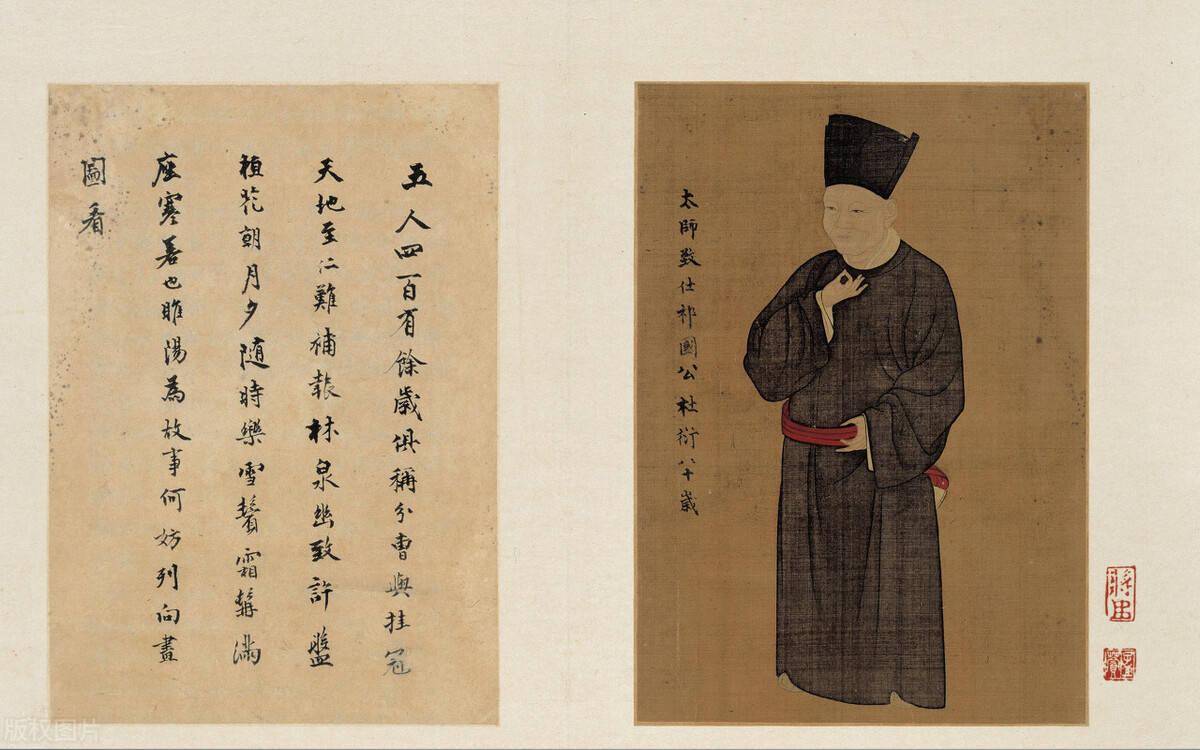 太師致仕祁國公杜衍八十歲
五人四百有餘歲俱稱分曹與挂冠
天地至仁難補報林泉幽致許盤
桓花朝月夕随時樂雪鬢霜髯滿
座寒若也睢陽為故事何妨列向畫
圖看
版权图片